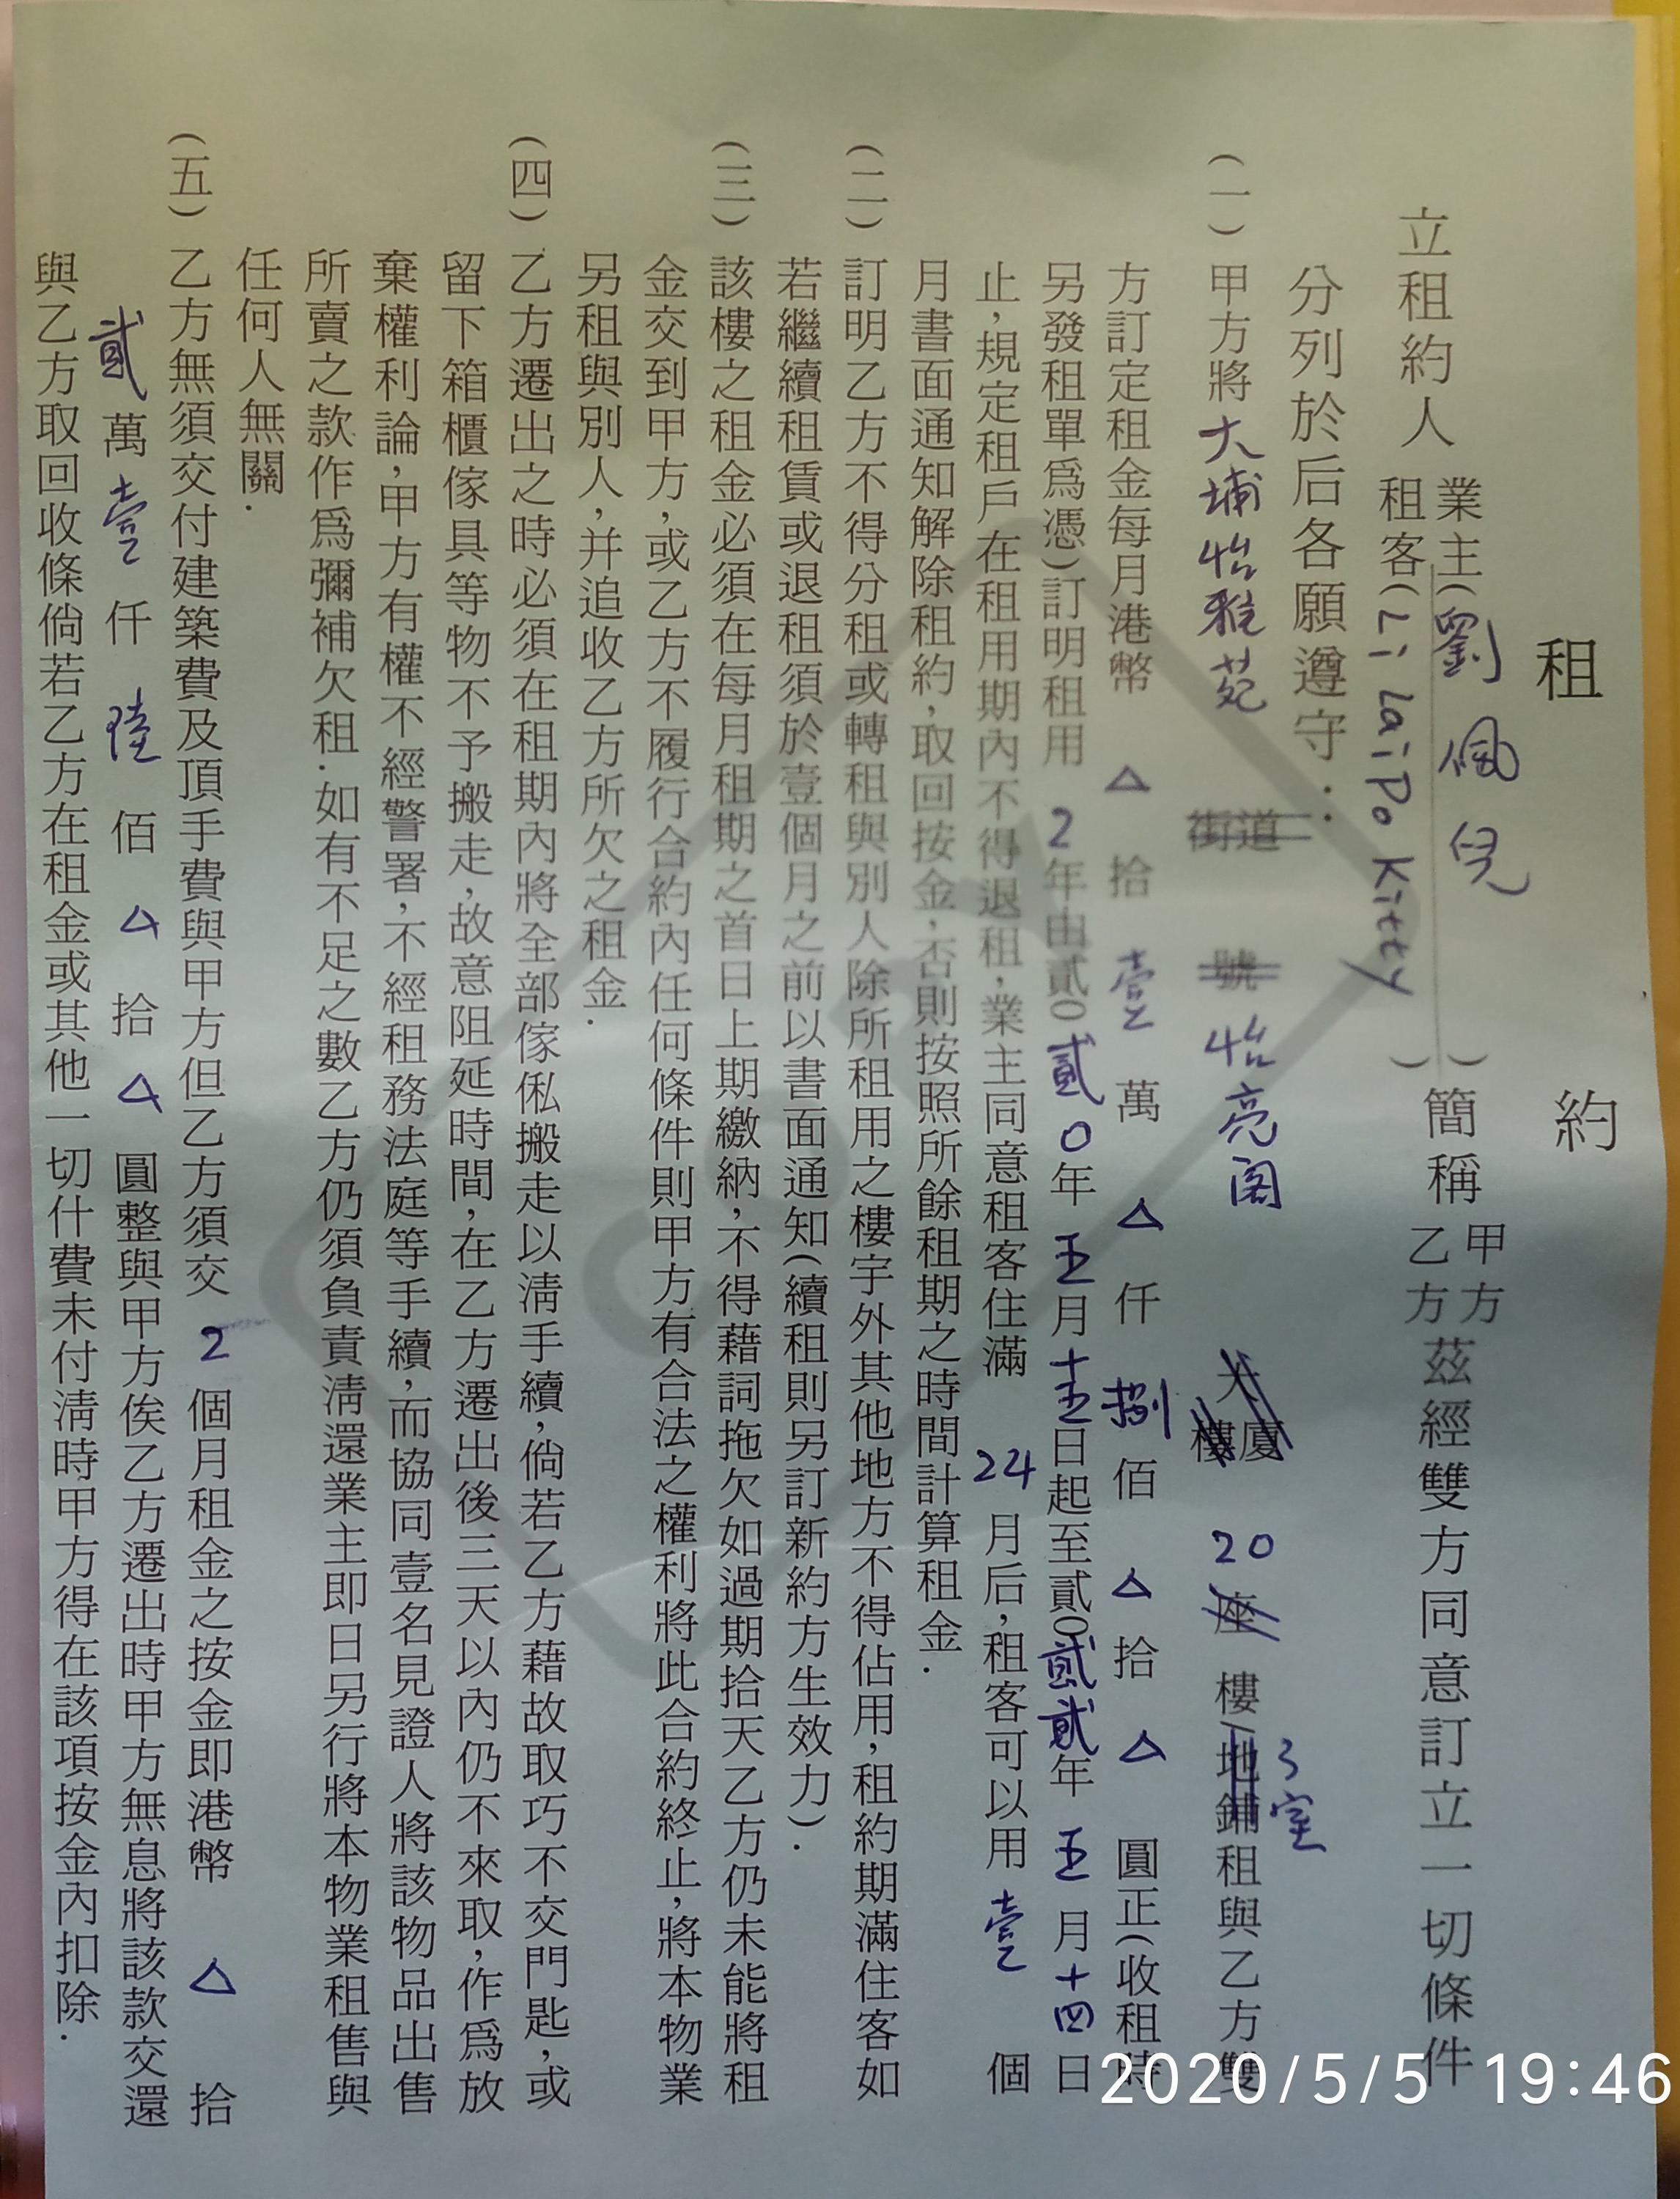 租約
立租約人 業主(劉佩兒)簡稱甲方茲經雙方同意訂立一切條件
租客(Li Lai Po Kitty)乙方
分列於后各願遵守:
(一)甲方將大埔怡雅苑 街道 號 怡亮閣 大廈樓 20 座樓地鋪 3室 租與乙方雙
方訂定租金每月港幣 △ 拾 壹 萬 △ 仟 捌 佰 △ 拾 △ 圓正(收租時
另發租單爲憑)訂明租用 2 年由貳0貳0年五月十五日起至貳0貳貳年五月十四日
止,規定租戶在租用期內不得退租,業主同意租客住滿 24 月后,租客可以用 壹 個
月書面通知解除租約,取回按金,否則按照所餘租期之時間計算租金.
(二)訂明乙方不得分租或轉租與別人除所租用之樓宇外其他地方不得佔用,租約期滿住客如
若繼續租賃或退租須於壹個月之前以書面通知(續租則另訂新約方生效力).
(三)該樓之租金必須在每月租期之首日上期繳納,不得藉詞拖欠如過期拾天乙方仍未能將租
金交到甲方,或乙方不履行合約內任何條件則甲方有合法之權利將此合約終止,將本物業
另租與別人,并追收乙方所欠之租金.
(四)乙方遷出之時必須在租期內將全部傢俬搬走以清手續,倘若乙方藉故取巧不交門匙,或
留下箱櫃傢具等物不予搬走,故意阻延時間,在乙方遷出後三天以內仍不來取,作爲放
棄權利論,甲方有權不經警署,不經租務法庭等手續,而協同壹名見證人將該物品出售
所賣之款作爲彌補欠租.如有不足之數乙方仍須負責清還業主即日另行將本物業租售與
任何人無關.
(五)乙方無須交付建築費及頂手費與甲方但乙方須交 2 個月租金之按金即港幣 △ 拾
貳 萬 壹 仟 陸 佰 △ 拾 △ 圓整與甲方俟乙方遷出時甲方無息將該款交還
與乙方取回收條倘若乙方在租金或其他一切什費未付清時甲方得在該項按金內扣除.
COPY
2020/5/5 19:46